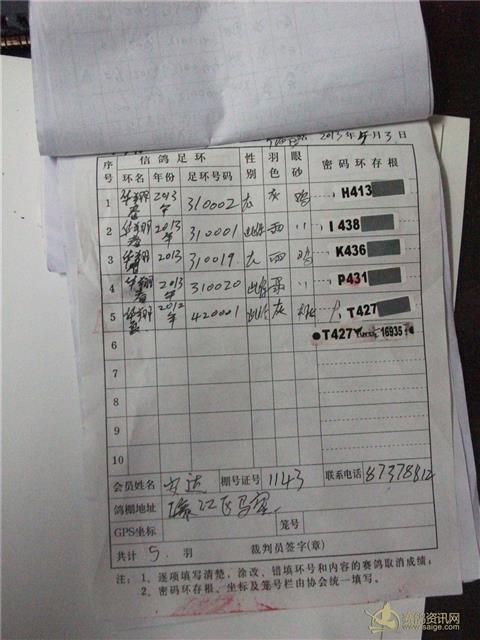 2013年5月3日
序号 信鸽足环 性别 羽色 眼砂 密码环存根
环名 年份 足环号码
1 华翔春 2013年 310002 灰 鸡 H413
2 华翔春 2013年 310001 雌 〃 I438
3 2013 310019 鸡 K436
4 华翔春 2013年 310020 雌 〃 P431
5 2012年 420001 雌 灰 T427
6 T427 16935
7
8
9
10
会员姓名 棚号证号 1143 联系电话 87378812
鸽棚地址
GPS坐标 笼号
共计 5 羽 裁判员签字(章)
注：1、逐项填写清楚，涂改、错填环号和内容的赛鸽取消成绩；
2、密码环存根、坐标及笼号栏由协会统一填写。
赛鸽资讯网
www.saige.com